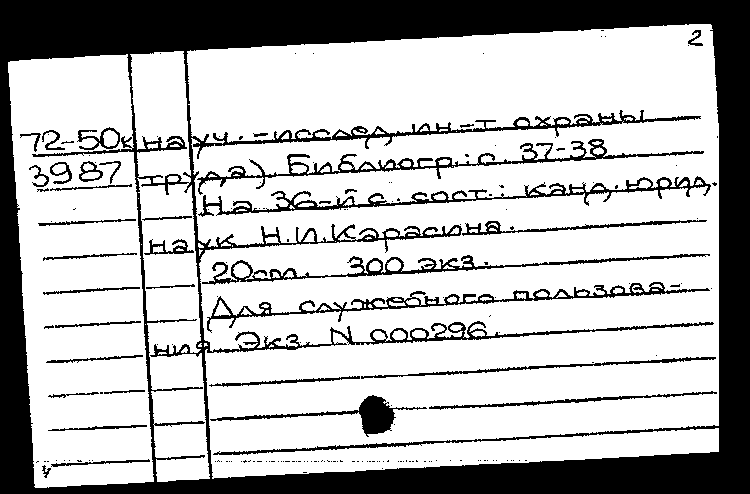 2
72-50к науч.-исслед. ин-т охраны
3987 труда). Библиогр.: с. 37-38
На 36-й с. сост.: канд. юрид.
наук Н.И. Карасина.
20см. 300 экз.
Для служебного пользова-
ния Экз. N 000296.